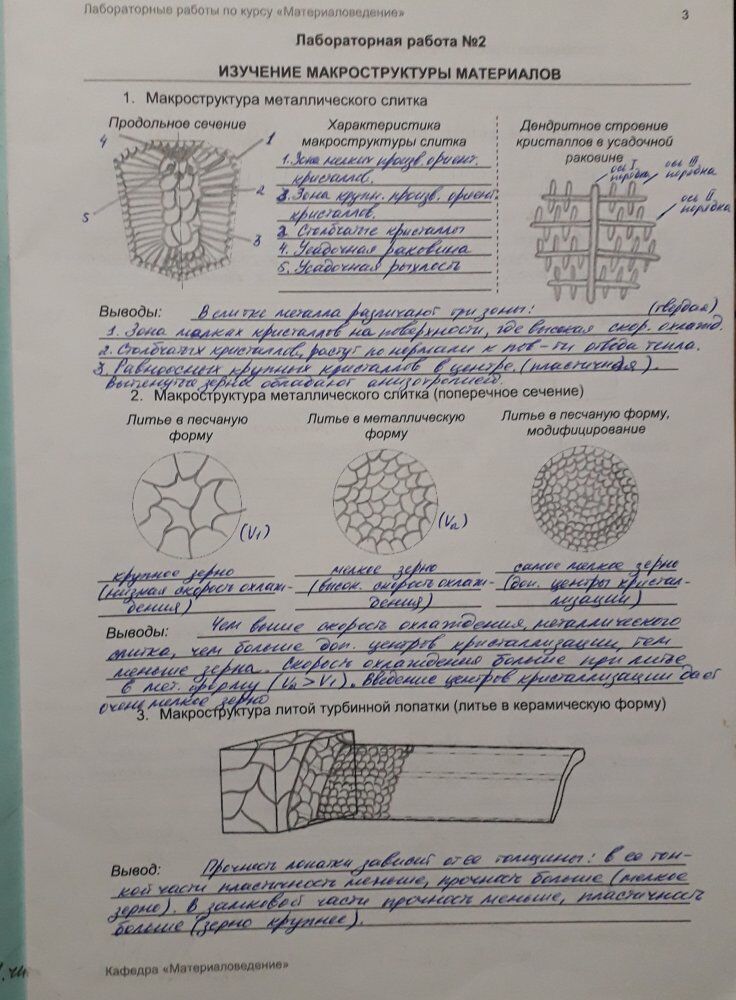 Лабораторные работы по курсу «Материаловедение»
3
Лабораторная работа №2
ИЗУЧЕНИЕ МАКРОСТРУКТУРЫ МАТЕРИАЛОВ
1. Макроструктура металлического слитка
Продольное сечение
4
1
2
5
3
Характеристика
макроструктуры слитка
1. Зона мелких произв. ориент.
кристаллов.
3. Зона крупн. произв. ориент.
кристаллов.
2 Столбчатые кристаллы
4. Усадочная раковина
5. Усадочная рыхлость
Дендритное строение
кристаллов в усадочной
раковине
ось I
порядка
ось III
порядка
ось II
порядка
Выводы: В слитке металла различают три зоны: (твердая)
1. Зона мелких кристаллов на поверхности, где высокая скор. охлажд.
2. Столбчатых кристаллов, растут по нормали к пов-ти отвода тепла.
3. Равноосных крупных кристаллов в центре (пластичная).
Вытянутые зерна обладают анизотропией.
2. Макроструктура металлического слитка (поперечное сечение)
Литье в песчаную
форму
(V₁)
крупное зерно
(низкая скорость охлаж-
дения)
Литье в металлическую
форму
(V₂)
мелкое зерно
(высок. скорость охлаж-
дения)
Литье в песчаную форму,
модифицирование
самое мелкое зерно
(доп. центры кристал-
лизации)
Выводы: Чем выше скорость охлаждения, металлического
слитка, чем больше доп. центров кристаллизации, тем
меньше зерна. Скорость охлаждения больше при литье
в мет. форму (V₂ > V₁). Введение центров кристаллизации дает
очень мелкое зерно
3. Макроструктура литой турбинной лопатки (литье в керамическую форму)
Вывод: Прочность лопатки зависит от ее толщины: в ее тон-
кой части пластичность меньше, прочность больше (мелкое
зерно). В замковой части прочность меньше, пластичность
больше (зерно крупнее).
Кафедра «Материаловедение»